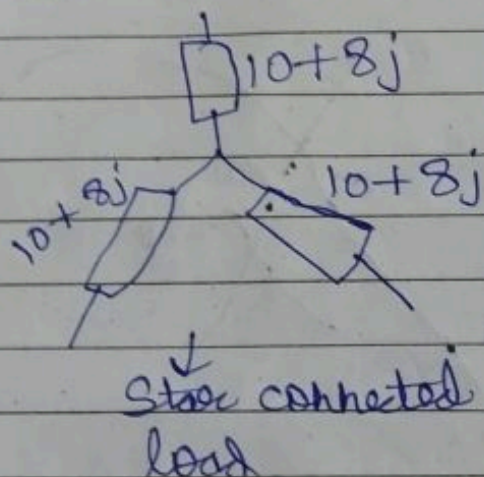 10+8j
10+8j
10+8j
Star connected
load